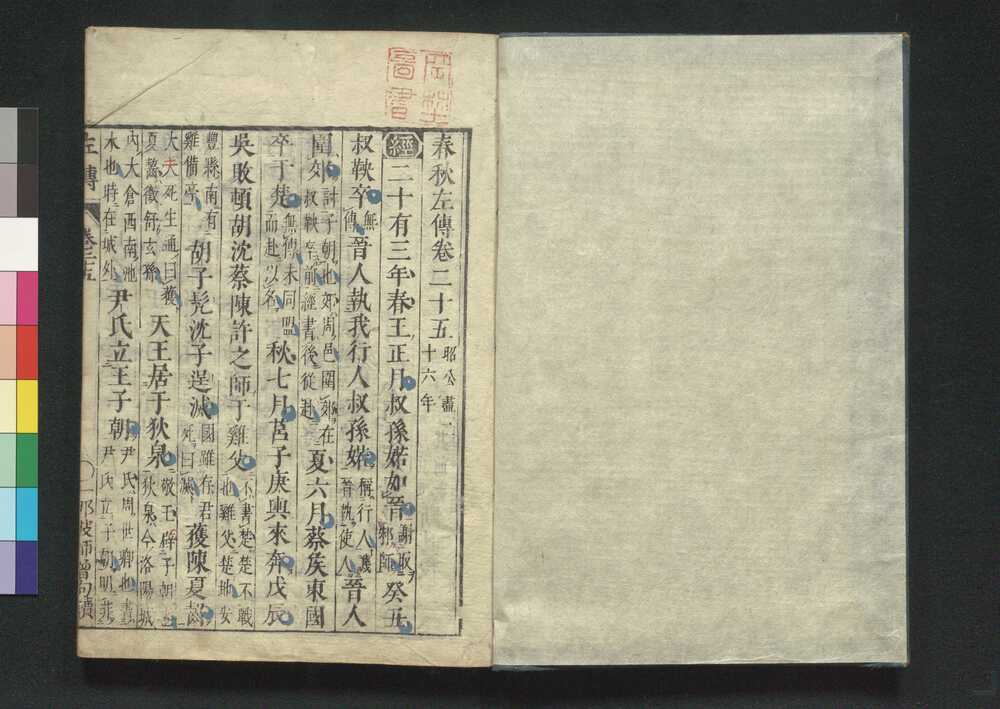 春秋左傳卷二十五 昭公盡二十六年
經二十有三年春王正月叔孫婼如晉 謝取邾師 癸丑
叔鞅卒 無傳 晉人執我行人叔孫婼 稱行人譏晉執使人 晉人
圍郊 討子朝也郊周邑圍郊在叔鞅卒前經書後從赴 夏六月蔡侯東國
卒于楚 無傳未同盟而赴以名 秋七月莒子庚輿來奔戊辰
吳敗頓胡沈蔡陳許之師于雞父 不書楚楚不戰也雞父楚地安
豐縣南有雞備亭 胡子髡沈子逞滅 國雖存君死曰滅 獲陳夏齧
大夫死生通曰獲夏齧徵舒玄孫 天王居于狄泉 敬王辟子朝也狄泉今洛陽城
內大倉西南池水也時在城外 尹氏立王子朝 尹氏周世卿也書尹氏立子朝明非
左傳 卷二十五 那波師曾句讀
圖書